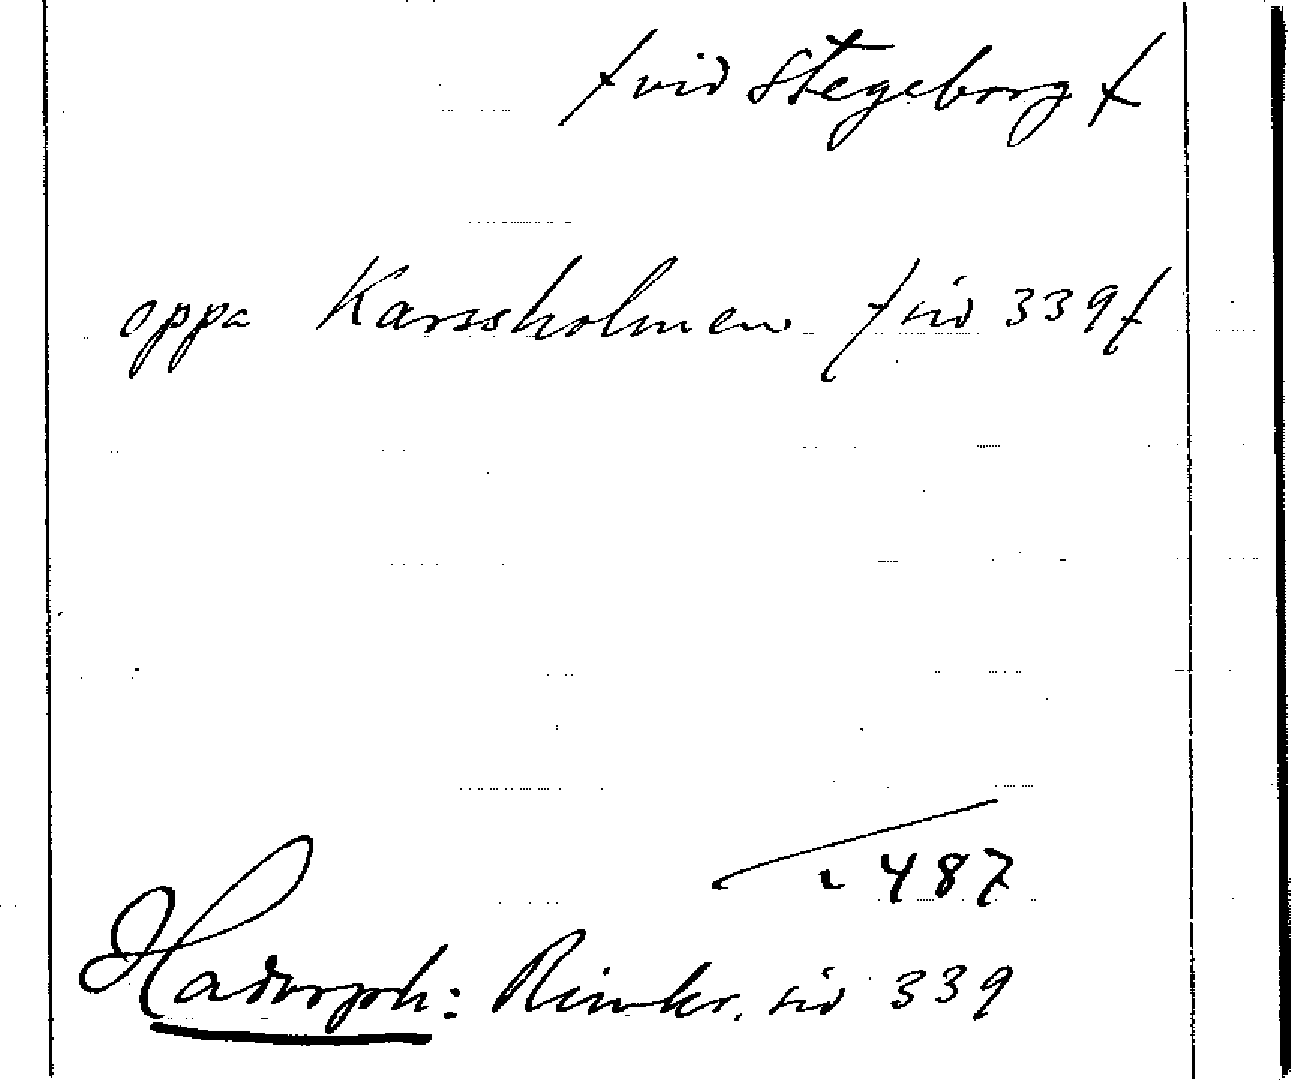 / vid Stegeborg /
oppa Karssholmen / sid 339 /
1487
Hadorph: Rimkr. sid 339